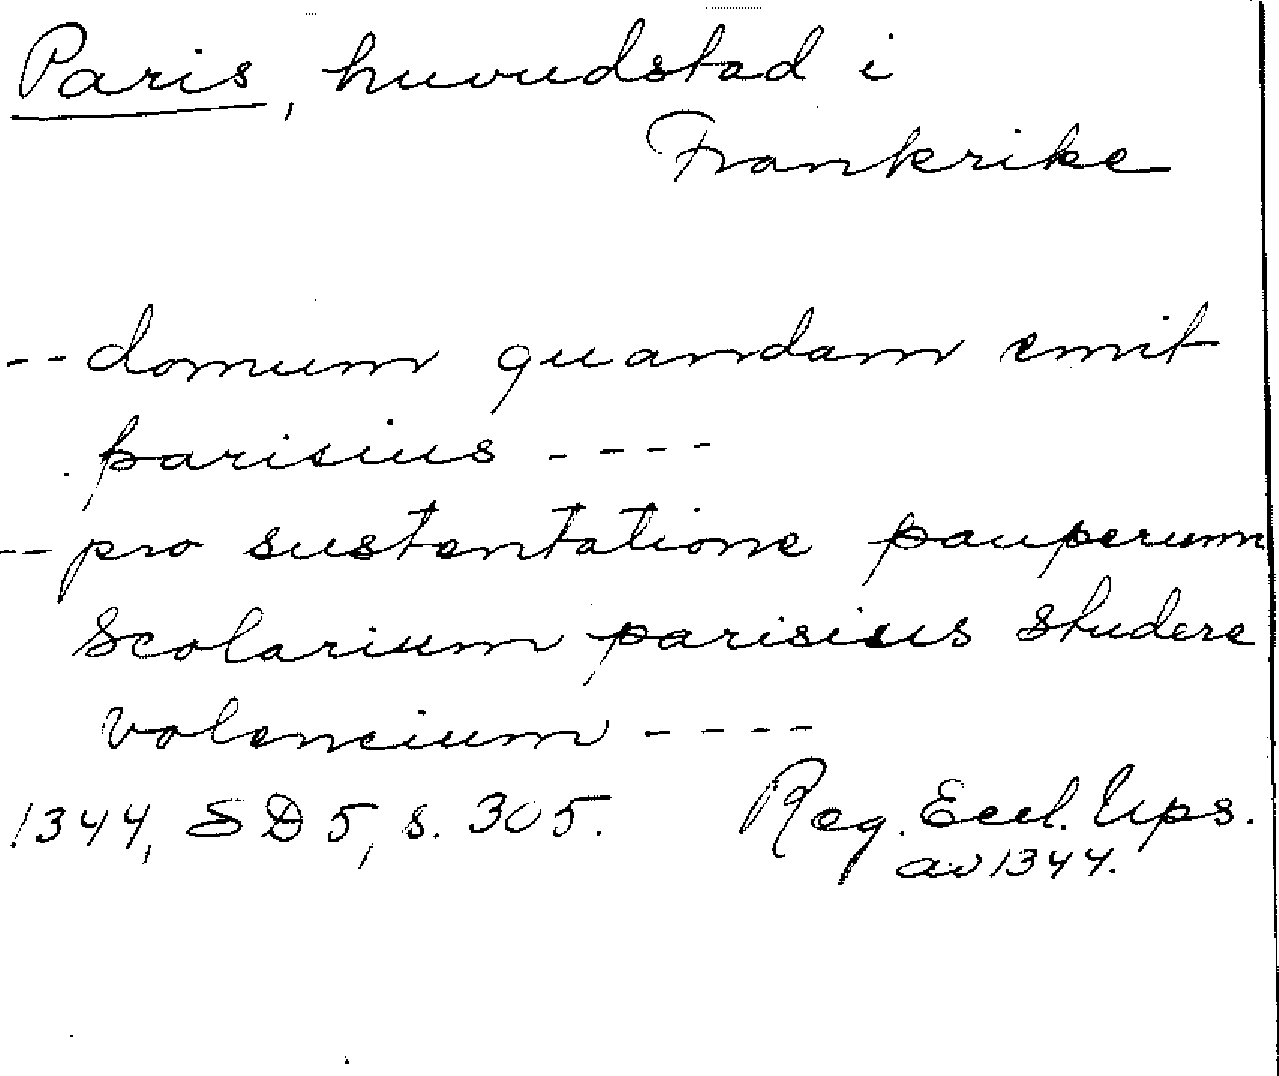 Paris, huvudstad i
Frankrike
-- domum quandam emit
parisius ----
-- pro sustentatione pauperum
scolarium parisius studere
volencium ----
1344, SD 5, s. 305. Reg. Eccl. Ups.
av 1344.